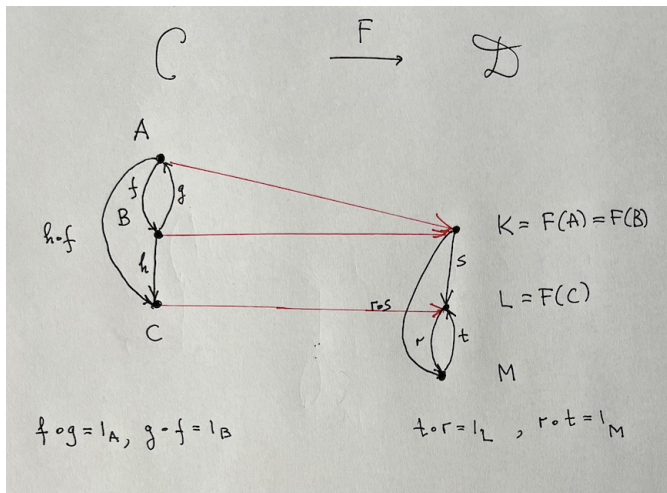 C F D
A
f g
B
h∘f
h
C
K = F(A) = F(B)
s
L = F(C)
r∘s
r t
M
f∘g = 1_A, g∘f = 1_B
t∘r = 1_L, r∘t = 1_M